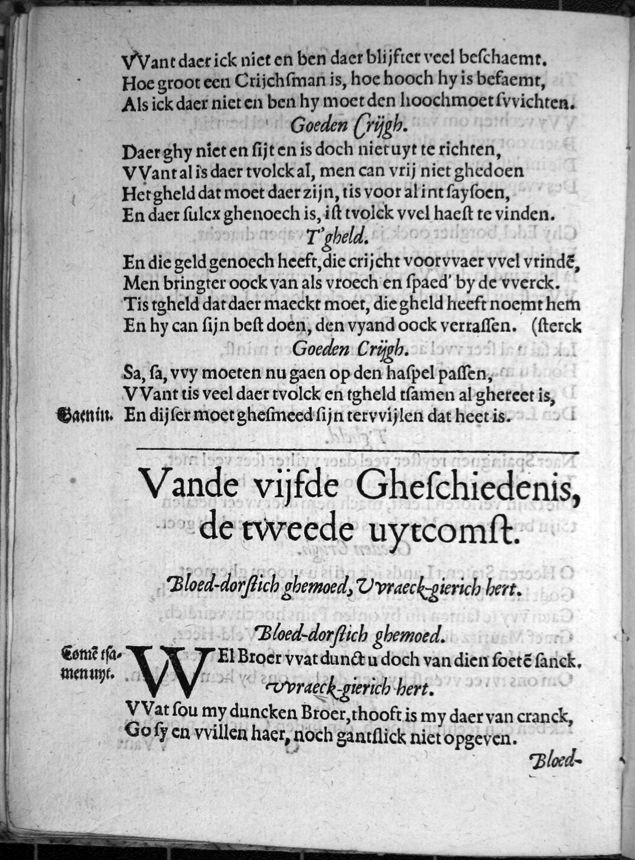 VVant daer ick niet en ben daer blijfter veel beſchaemt.
Hoe groot een Crijchſman is, hoe hooch hy is befaemt,
Als ick daer niet en ben hy moet den hoochmoet ſvvichten.
Goeden Crijgh.
Daer ghy niet en ſijt en is doch niet uyt te richten,
VVant al is daer tvolck al, men can vrij niet ghedoen
Het gheld dat moet daer zijn, tis voor al int ſayſoen,
En daer ſulcx ghenoech is, iſt tvolck vvel haeſt te vinden.
T'gheld.
En die geld genoech heeft, die crijcht voorvvaer vvel vrindē,
Men bringter oock van als vroech en ſpaed' by de vverck.
Tis tgheld dat daer maeckt moet, die gheld heeft noemt hem
En hy can ſijn beſt doen, den vyand oock verraſſen. (ſterck
Goeden Crijgh.
Sa, ſa, vvy moeten nu gaen op den haſpel paſſen,
VVant tis veel daer tvolck en tgheld tſamen al ghereet is,
Gaen in. En dijſer moet gheſmeed ſijn tervvijlen dat heet is.
Vande vijfde Gheſchiedenis,
de tweede uytcomſt.
Bloed-dorſtich ghemoed, Vvraeck-gierich hert.
Bloed-dorſtich ghemoed.
Comē tſa-
men uyt.
WEl Broer vvat dunct u doch van dien ſoetē ſanck.
Vvraeck-gierich hert.
VVat ſou my duncken Broer, thooft is my daer van cranck,
Go ſy en vvillen haer, noch gantſlick niet opgeven.
Bloed-